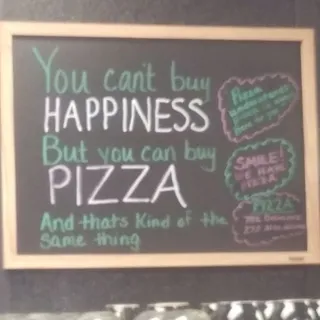 You can't buy
HAPPINESS
But you can buy
PIZZA
And thats Kind of the
same thing
Pizza
SMILE!
WE HAVE
PIZZA
PIZZA